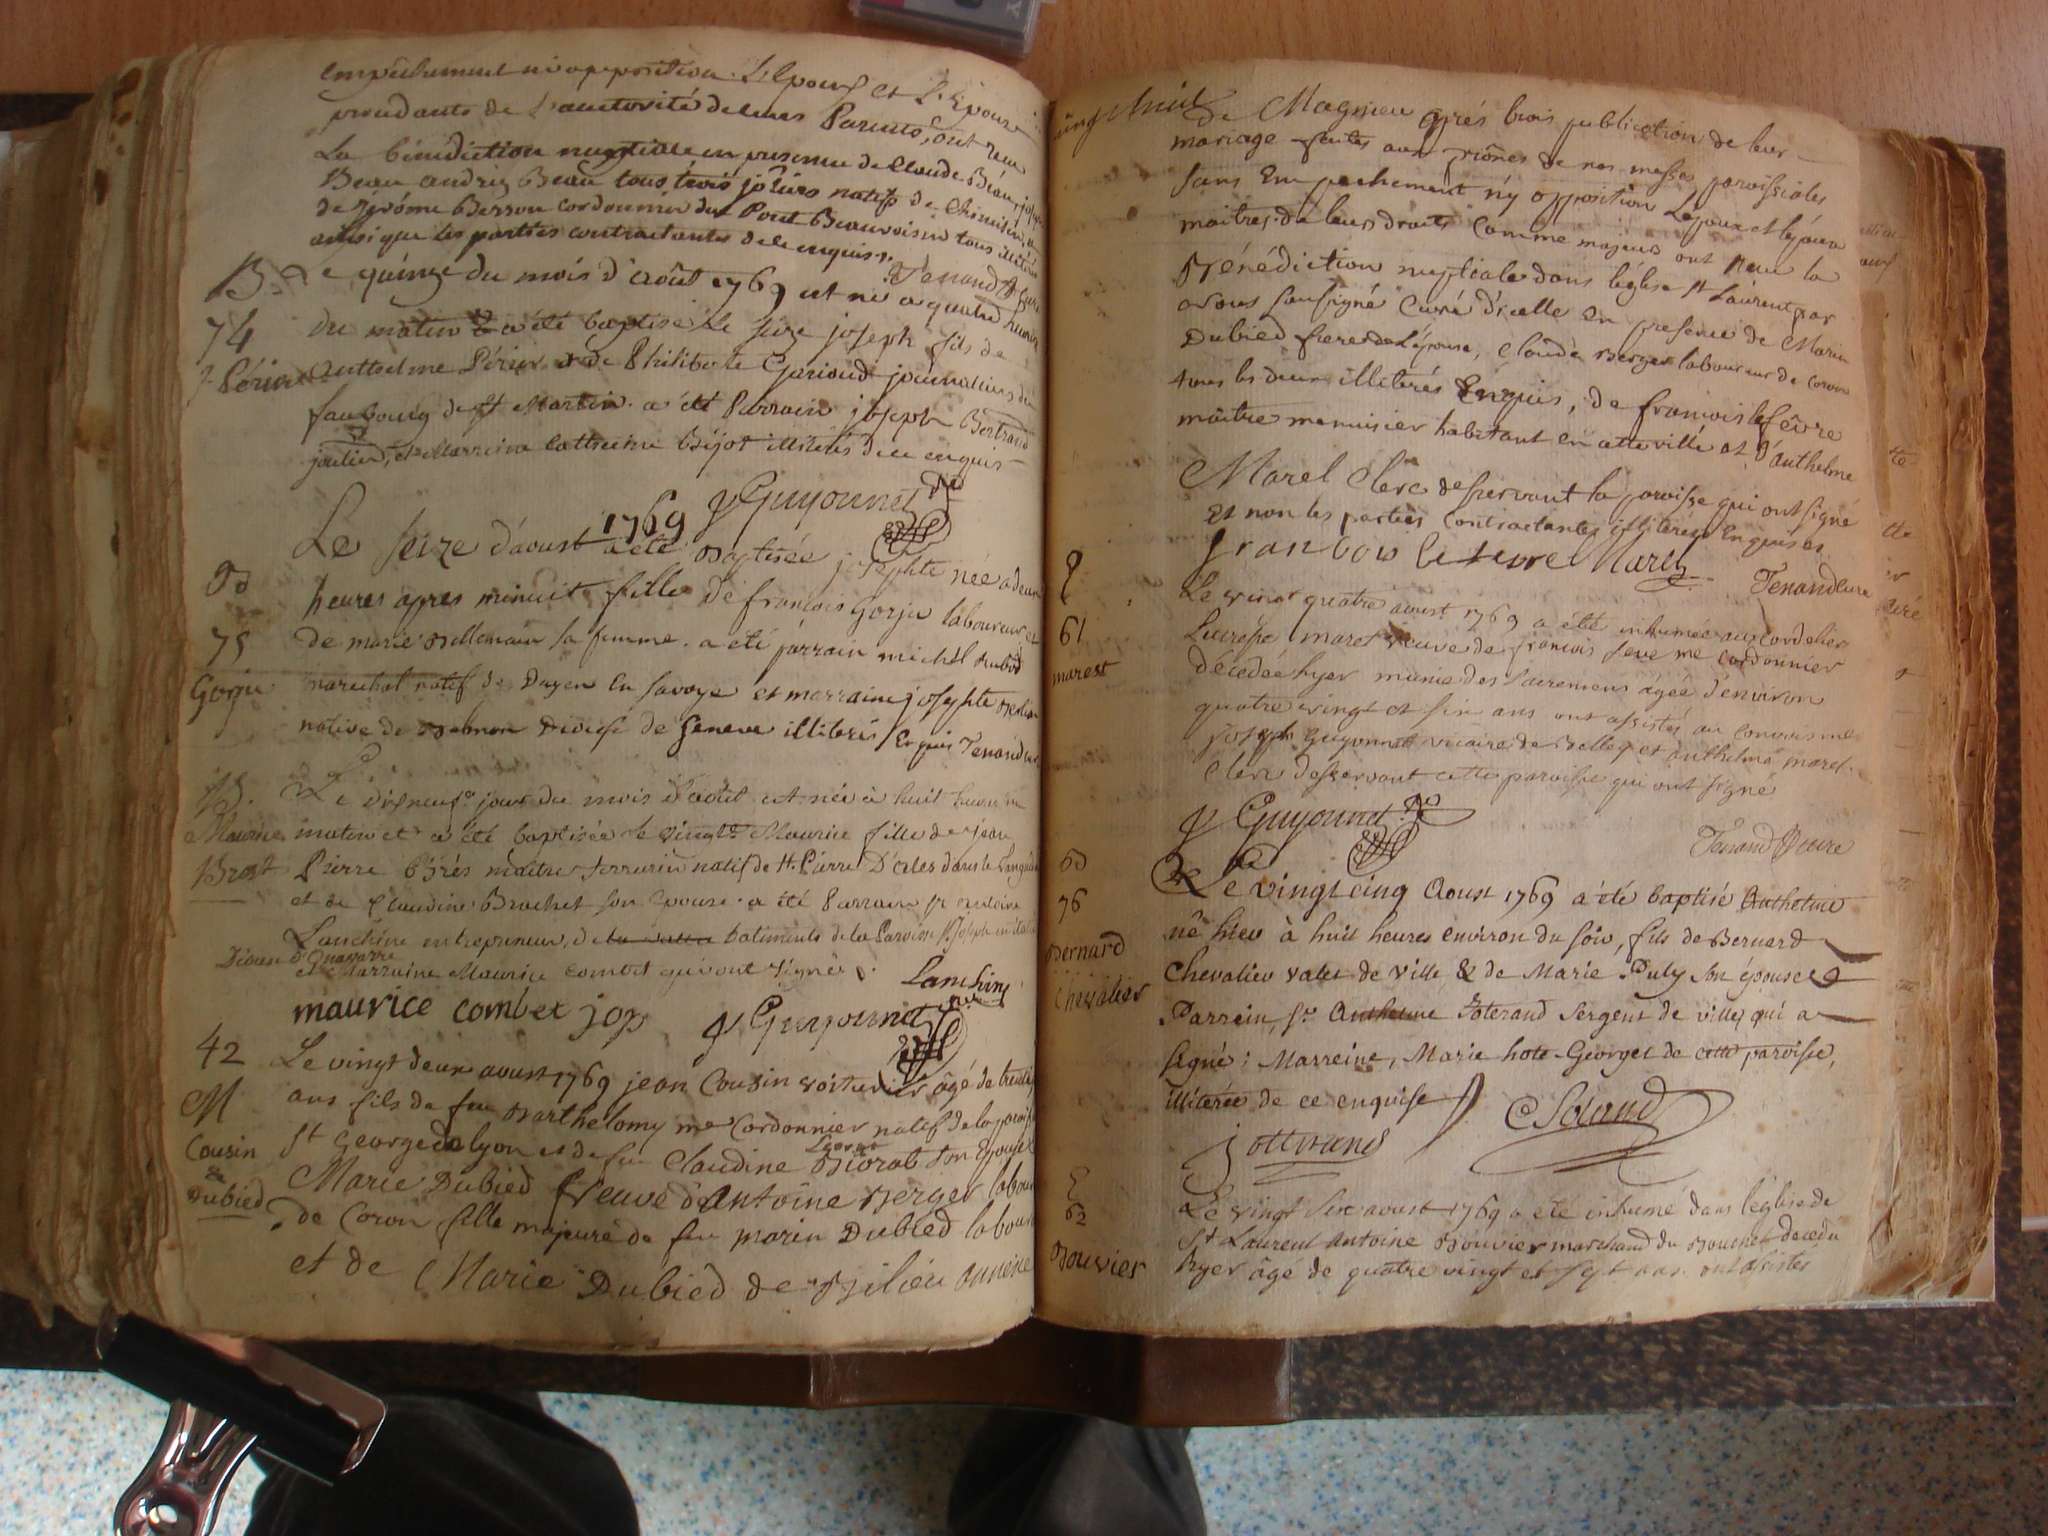 empêchement ni opposition. L'Epoux et L'Epouse
prendants de L'auctorité de leurs Parents, ont reçu
La bénédiction nuptiale en presence de Claude Beau, joseph
Beau andrez Beau tous trois jôliers natifs de Chemisieu, &
de Jerôme Berrou cordonnier du Pont Beauvoisin tous illiteres
ainsi que les parties contractantes de ce enquis.
Tenand Cure
B.
74
Périer
Le quinze du mois d'août 1769 est né a quatre heures
du matin et a été baptisé Le seize joseph fils de
Anthelme Périer et de Philiberte Garioud journaliers du
fauxbourg de St Martin. a été Parrain joseph Bertrand
joulier, et Marraine Catherine Bijot illitérés de ce enquis
J Guyonnet Vre
Bp
75
Gorju
Le seize d'aoust 1769 a été Baptisée josephte née a deux
heures apres minuit fille de françois Gorju laboureur et
de marie Billemain sa femme. a été parrain michel Dubois
marechal natif de Duyen en savoye et marraine josephte
native de diocese de Geneve illiteris Enquis Tenand cure
B.
Maurice
Brest
Le dixneuf jour du mois d'août est née à huit heures du
matin et a été baptisée le vingt Maurice fille de jean
Pierre Brés maître serrurier natif de St. Pierre D' dans le Languedoc
et de Claudine Brachet son Epouse. a été Parrain Sr antoine
Lanchine entrepreneur, de la batiments de la Paroisse St joseph
et Marraine Maurice combet qui ont signé.
Lanchine
maurice combet jop J Guyonnet Vre
42
M
Cousin
&
Dubied
Le vingt deux aoust 1769 jean Cousin voiturier âgé de trente
ans fils de feu Barthelomy me Cordonnier natif de la paroisse
St George de lyon et de feu Claudine Biorat son Epouse et
Marie Dubied Veuve d'Antoine Berger labour
de Coron fille majeure de feu marin Dubied labour
et de Marie Dubied de Bilieu annexe
de Magnieu après trois publications de leur
mariage faites aux priônes de nos messes paroissiales
sans Empechement n'y opposition L'epoux et l'epouse
maitres de leurs droits comme majeurs ont reçu la
Bénédiction nuptiale dans l'église St Laurent par
nous soussigné Curé d'icelle en presence de Marin
Dubied frere de L'epouse, Claude Berger laboureur de Coron
tous les deux illiterés Enquis, de françois lefevre
maître menuisier habitant en cette ville et d'anthelme
Marel Clerc desservant la paroisse qui ont signé
Et non les parties contractantes illiterées Enquises
françois le fevre Marel Tenand cure
E
61
marest
Le vingt quatre aoust 1769 a été inhumée aux cordelier
Lucrèse maret veuve de françois seve me cordonnier
décedée hyer munie des sacremens âgée d'environ
quatre vingt et six ans ont assistés au convoi me
joseph Guyonnet vicaire de Belley et anthelme marel
Clerc desservant cette paroisse qui ont signé
J Guyonnet Vre
Tenand Cure
Bp
76
Bernard
Chevalier
Le vingt cinq Aoust 1769 a été baptisé Anthelme
né hier à huit heures environ du soir, fils de Bernard
Chevalier valet de ville & de Marie Puly son épouse
Parrain, Sr Anthelme Joterand Sergent de ville, qui a
signé; Marreine, Marie hote Georget de cette paroisse,
illitérée de ce enquise
jotterand
E
62
Bouvier
Le vingt six aoust 1769 a été inhumé dans l'église de
St Laurent Antoine Bouvier marchand du Bouchet decedé
hyer âgé de quatre vingt et sept ans ont assistés